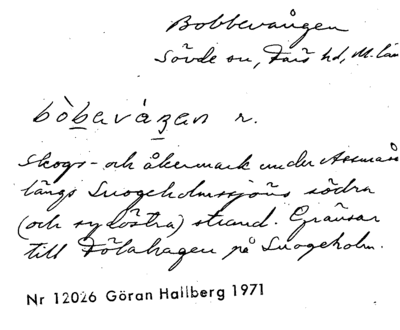 Bobbevången
Sövde sn, Färs hd, M. län
bòbavàŋan r.
Skogs- och åkermark under Assmås
längs Snogeholmssjöns södra
(och sydöstra) strand. Gränsar
till Fölahagen på Snogeholm.
Nr 12026 Göran Hallberg 1971